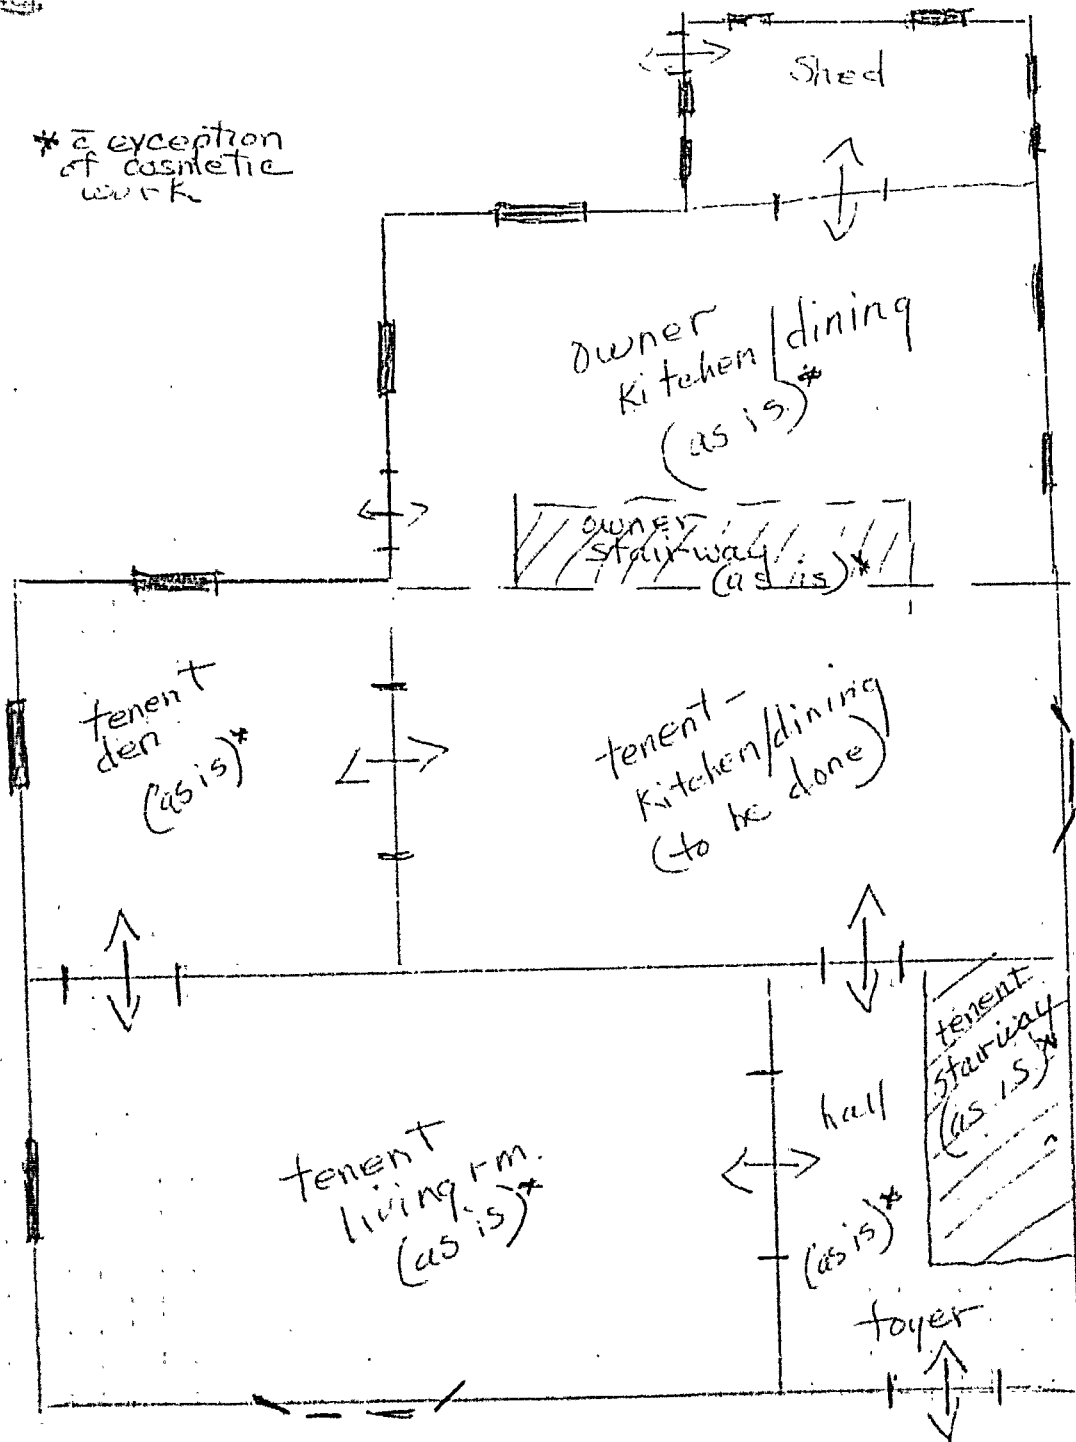 * c̄ exception
of cosmetic
work
Shed
owner
kitchen/dining
(as is)*
owner
stairway
(as is)*
tenent
den
(as is)*
tenent-
kitchen/dining
(to be done)
tenent
stairway
(as is)*
hall
(as is)*
tenent
living rm.
(as is)*
foyer